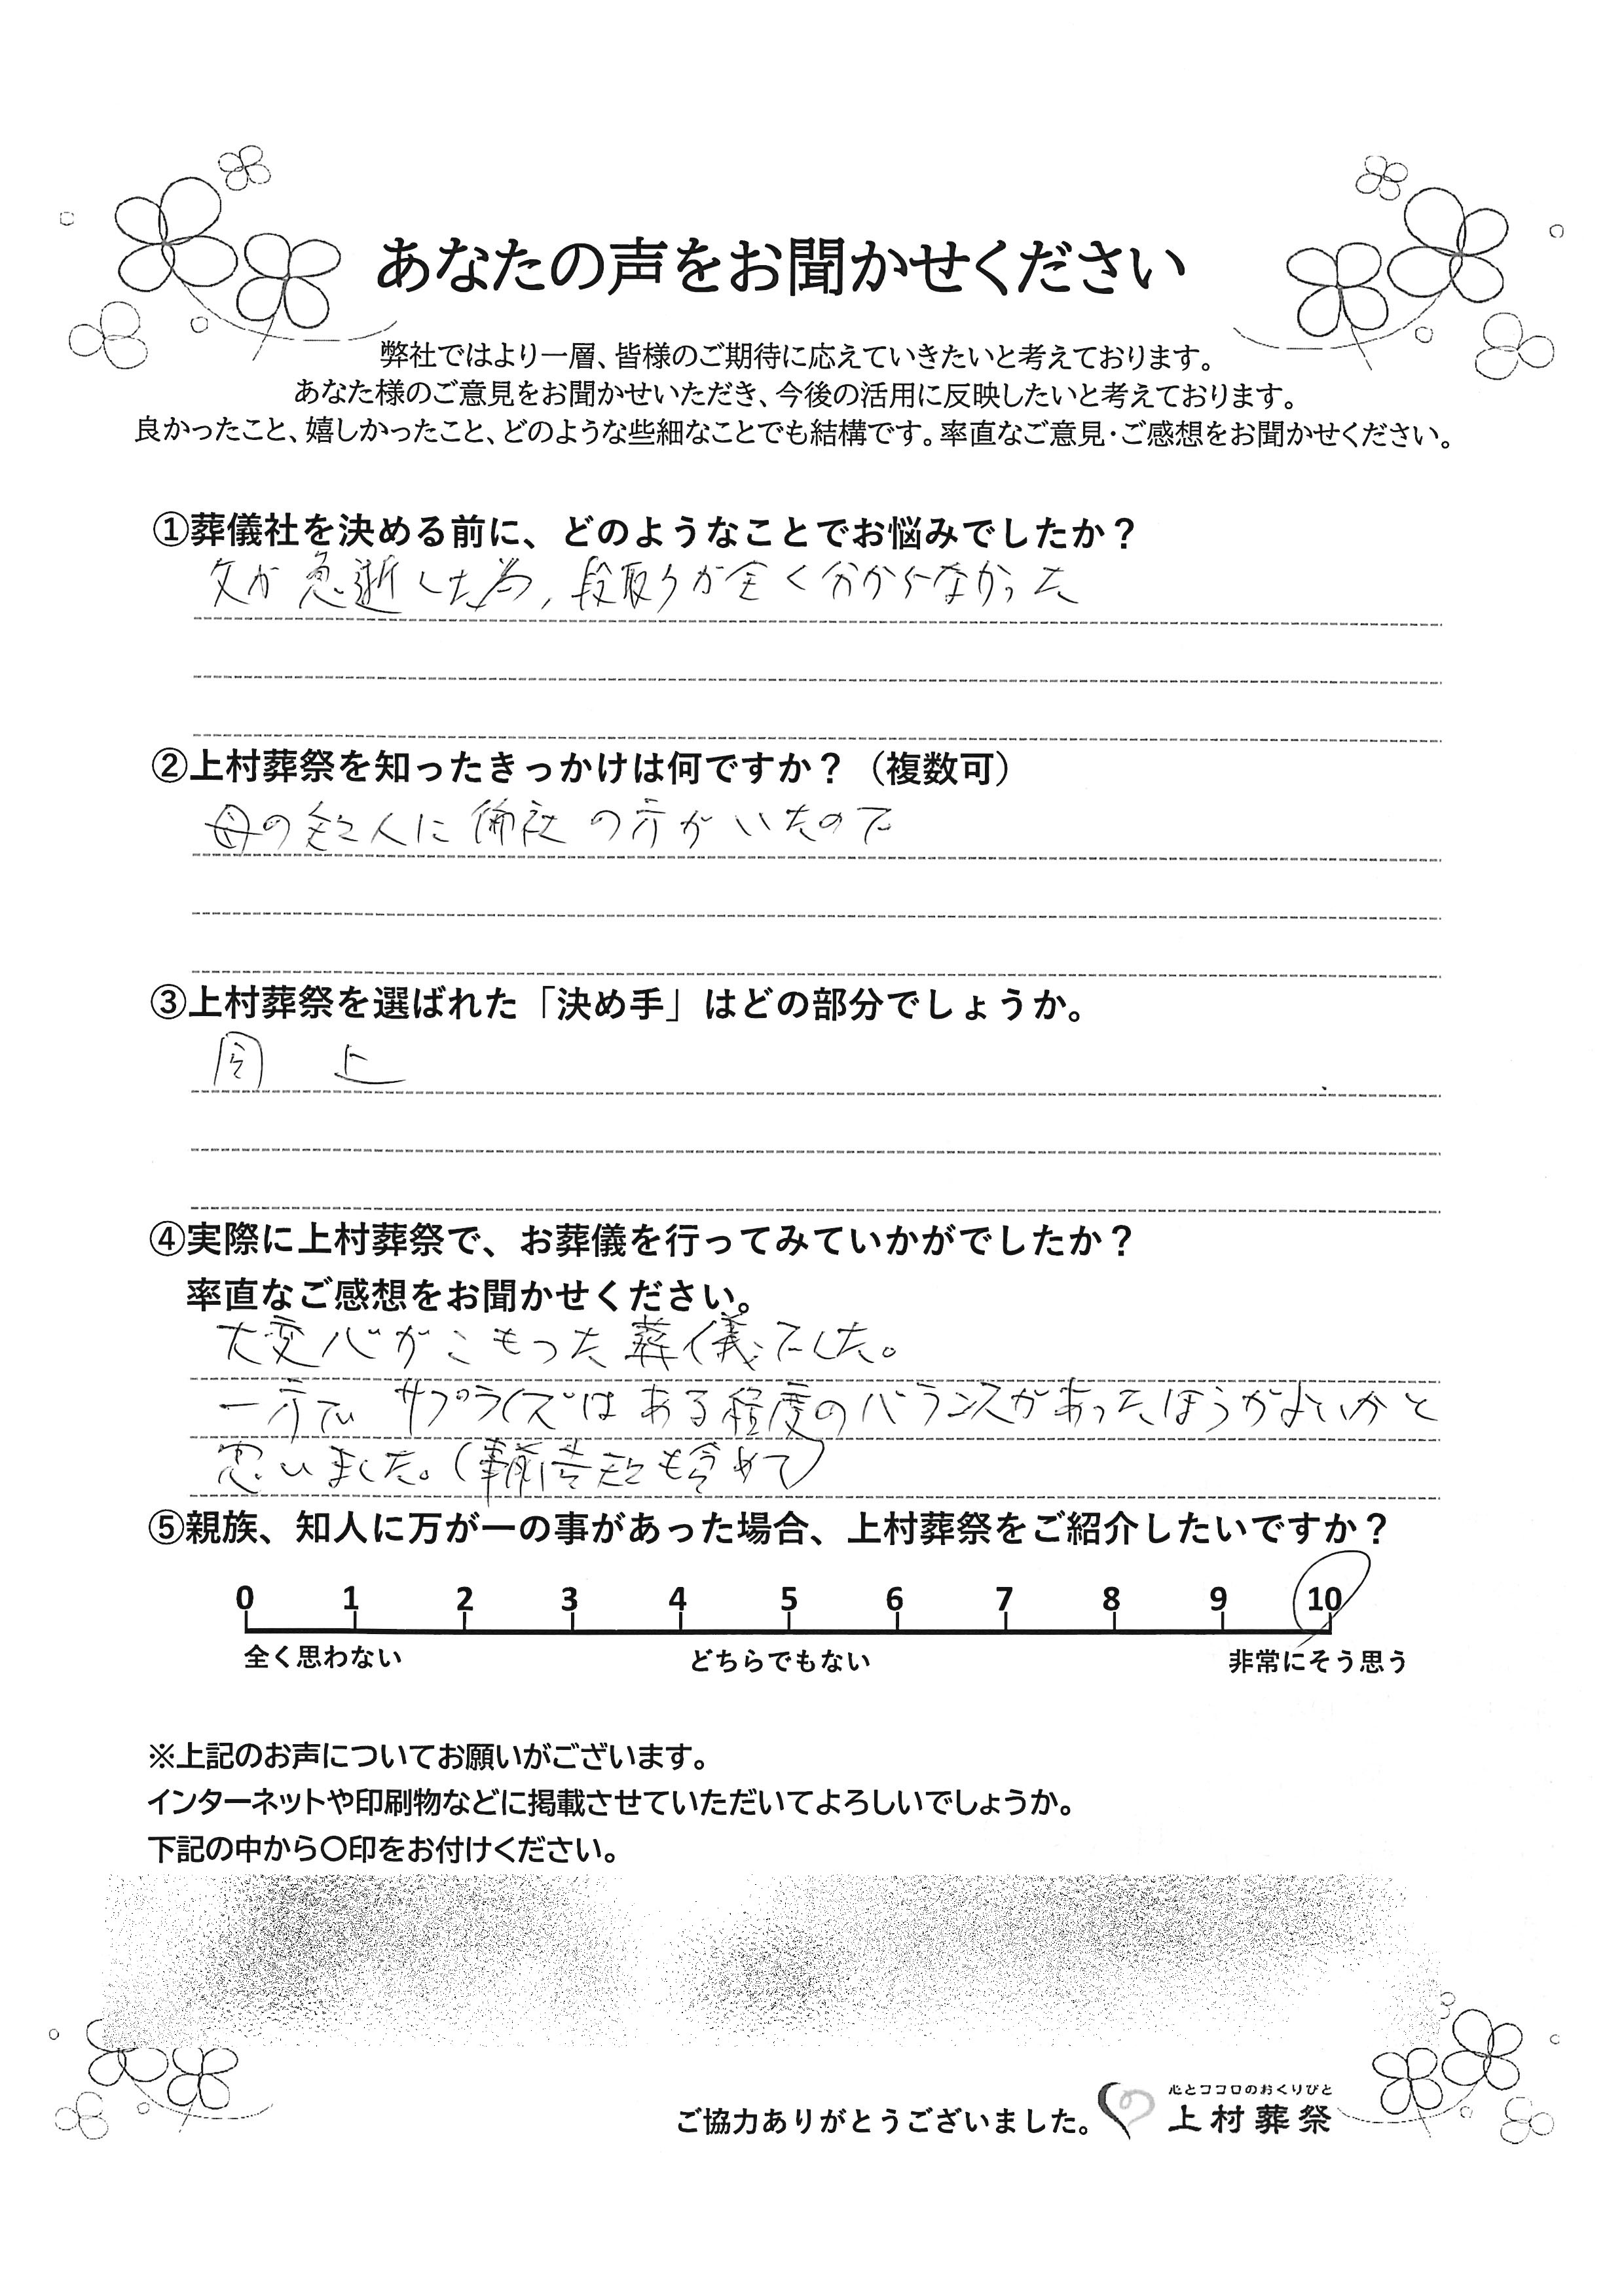 あなたの声をお聞かせください
弊社ではより一層、皆様のご期待に応えていきたいと考えております。
あなた様のご意見をお聞かせいただき、今後の活用に反映したいと考えております。
良かったこと、嬉しかったこと、どのような些細なことでも結構です。率直なご意見・ご感想をお聞かせください。
①葬儀社を決める前に、どのようなことでお悩みでしたか？
父が急逝した為、段取りが全く分からなかった
②上村葬祭を知ったきっかけは何ですか？（複数可）
母の知人に御社の方がいたので
③上村葬祭を選ばれた「決め手」はどの部分でしょうか。
同 上
④実際に上村葬祭で、お葬儀を行ってみていかがでしたか？
率直なご感想をお聞かせください。
大変心がこもった葬儀でした。
一方でサプライズはある程度のバランスがあったほうがよいかと
思いました。（事前告知も含めて）
⑤親族、知人に万が一の事があった場合、上村葬祭をご紹介したいですか？
0 1 2 3 4 5 6 7 8 9 10
全く思わない どちらでもない 非常にそう思う
※上記のお声についてお願いがございます。
インターネットや印刷物などに掲載させていただいてよろしいでしょうか。
下記の中から〇印をお付けください。
心とココロのおくりびと
ご協力ありがとうございました。 上村葬祭